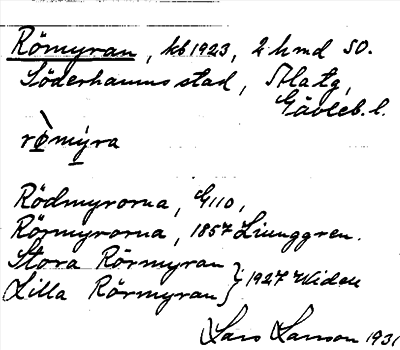 Römyran, kb 1923, 2 hmd SO.
Söderhamns stad, Ala tg,
Gävleb. l.
rò̱mỵra
Rödmyrorna, G110,
Rörmyrorna, 1857 Ljunggren.
Stora Rörmyran } 1927 Widell
Lilla Rörmyran
Lars Larson 1931